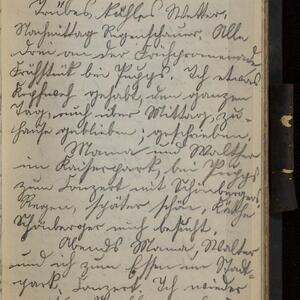 Trübes kühles Wetter,
Nachmittag Regenschauer. Alle
drei an der Frühpromenade,
Frühstück bei Pupps. Ich etwas
Kopfweh gehabt, den ganzen
Tag, auch über Mittag, zu-
hause geblieben, geschrieben.
Mama und Walther
im Kaiserpark, bei Pupps
zum Konzert mit Schönbergers
Regen, später schön, Käthe
Schönberger mich besucht.
Abends Mama, Walter
und ich zum Essen im Stadt-
park, Konzert. Ich wieder